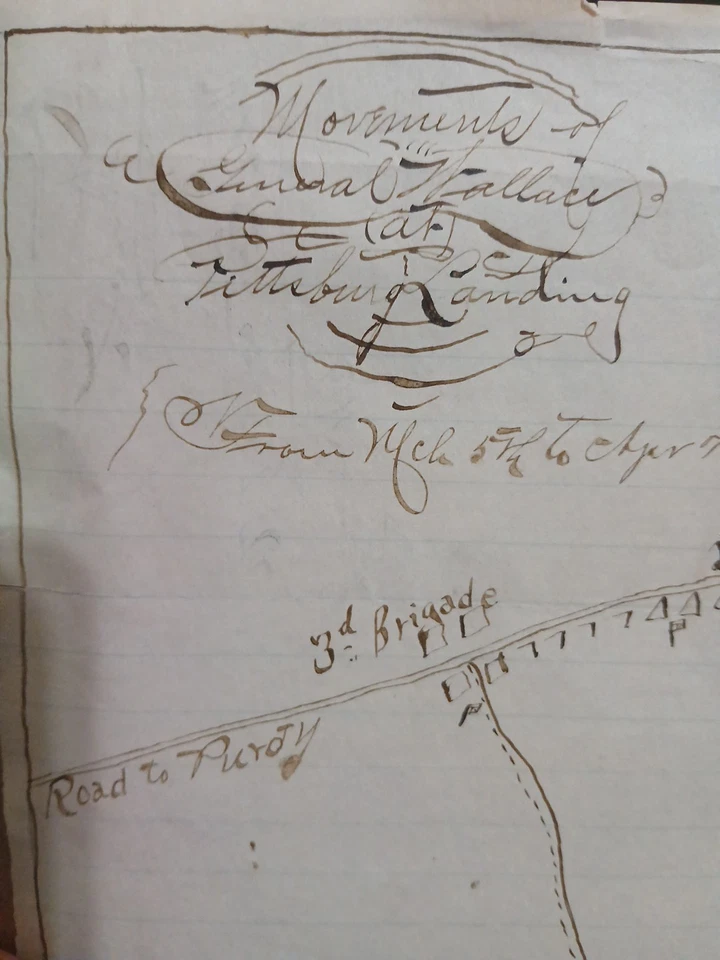 Movements of
General Wallace
(at)
Pittsburg Landing
From Mch 5th to Apr
3d Brigade
Road to Purdy